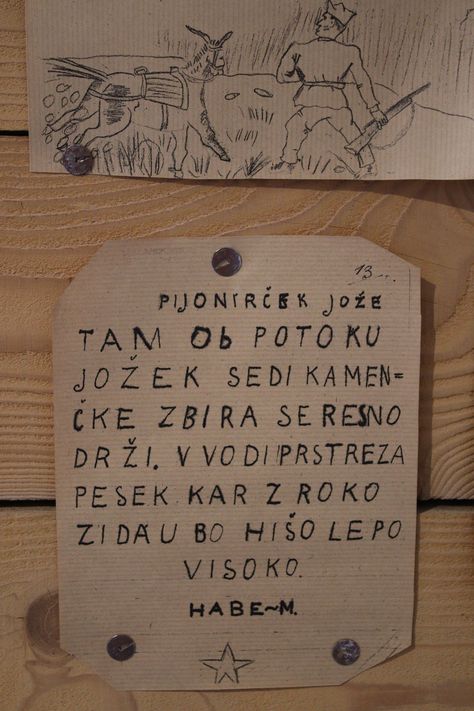 13
PIJONIRČEK JOŽE
TAM Ob POTOKU
JOŽEK SEDI KAMEN=
ČKE ZBIRA SE RESNO
DRŽI. V VODI PRSTREZA
PESEK KAR Z ROKO
ZIDAU BO HIŠO LEPO
VISOKO.
HABE~M.